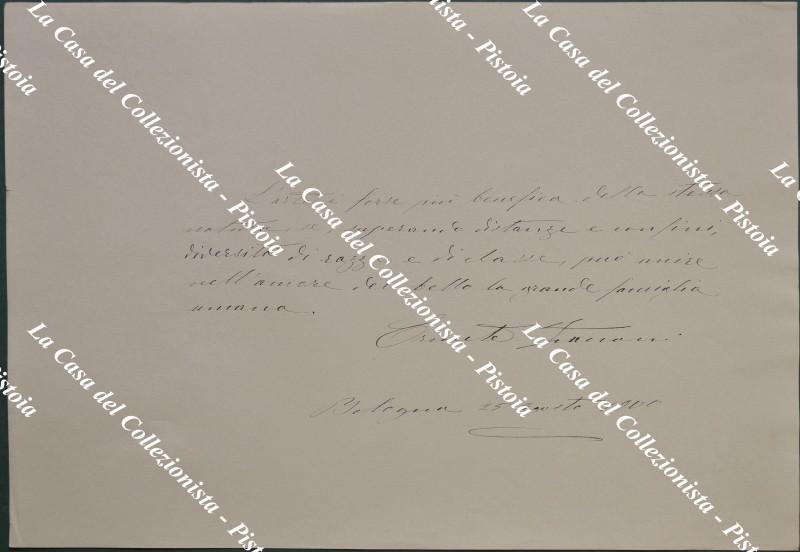 L'arte è forse più benefica della stessa
natura se, superando distanze e confini,
diversità di razze e di classe, può unire
nell'amore del bello la grande famiglia
umana.
Bologna 25 agosto
La Casa del Collezionista - Pistoia
La Casa del Collezionista - Pistoia
La Casa del Collezionista - Pistoia
La Casa del Collezionista - Pistoia
La Casa del Collezionista - Pistoia
La Casa del Collezionista - Pistoia
Pistoia
Pistoia
La Ca